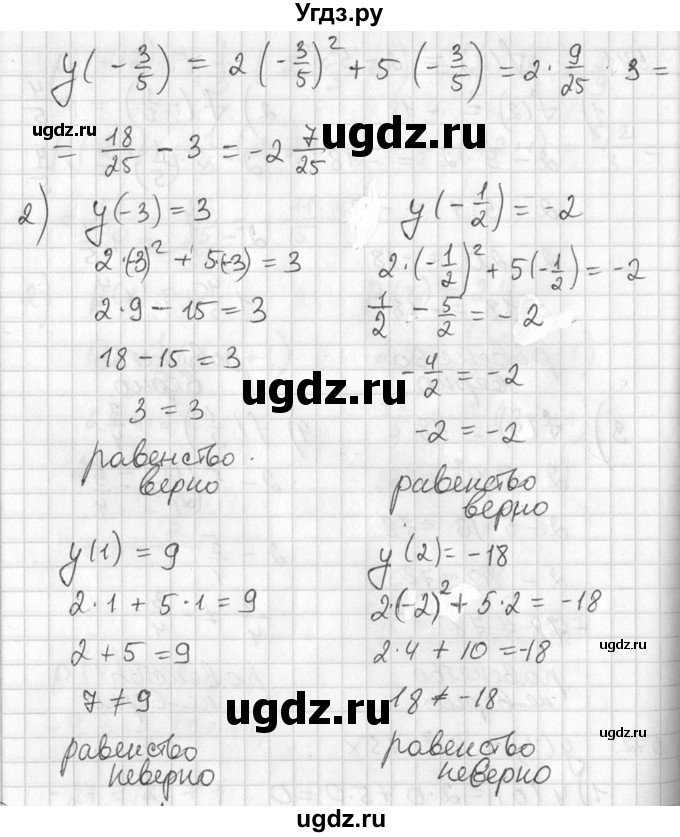 Угдз.ру
y(-3/5) = 2(-3/5)² + 5(-3/5) = 2·9/25 · 3 =
ugdz.ru
= 18/25 - 3 = -2 7/25
ugdz.ru
2) y(-3) = 3
2·(-3)² + 5·(-3) = 3
2·9 - 15 = 3
18 - 15 = 3
3 = 3
равенство
верно
y(-1/2) = -2
2·(-1/2)² + 5(-1/2) = -2
1/2 - 5/2 = -2
-4/2 = -2
-2 = -2
равенство
верно
ugdz.ru
ugdz.ru
y(1) = 9
2·1 + 5·1 = 9
2 + 5 = 9
7 ≠ 9
равенство
неверно
y(2) = -18
2·(-2)² + 5·2 = -18
2·4 + 10 = -18
18 ≠ -18
равенство
неверно
ugdz.ru
ugdz.ru
ugdz.ru
ugdz.ru